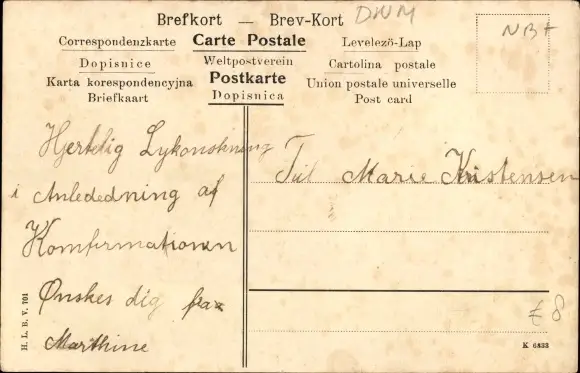 Brefkort — Brev-Kort
DWM
NB+
Correspondenzkarte Carte Postale Levelező-Lap
Dopisnice Weltpostverein Cartolina postale
Karta korespondencyjna Postkarte Union postale universelle
Briefkaart Dopisnica Post card
Hjertelig Lykonskning
i Anlededning af
Komfirmationen
Ønskes dig fraa
Marthine
Til Marie Kristensen
£ 8
H. L. B. V. 701
K 6833